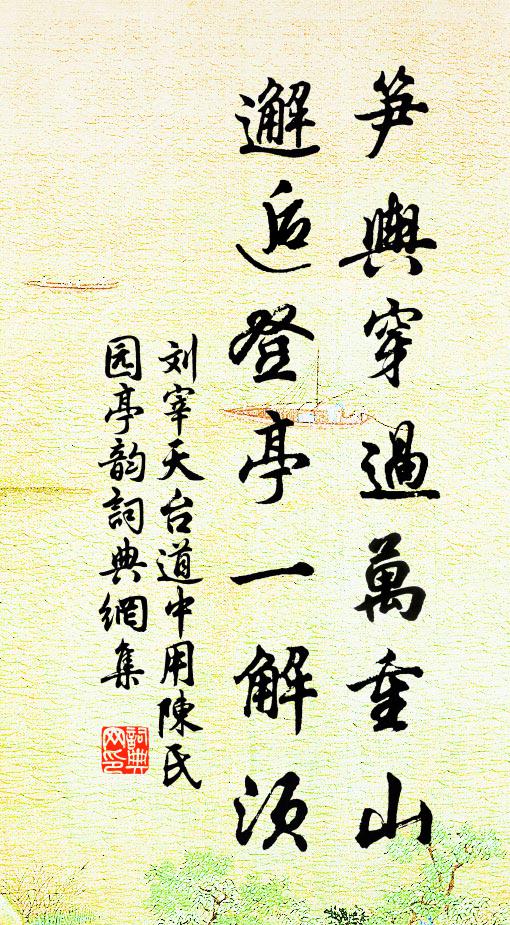 笋輿穿過萬重山
邂逅登亭一解須
刘宰天台道中用陳氏
园亭韵詞典網集
詞典网印